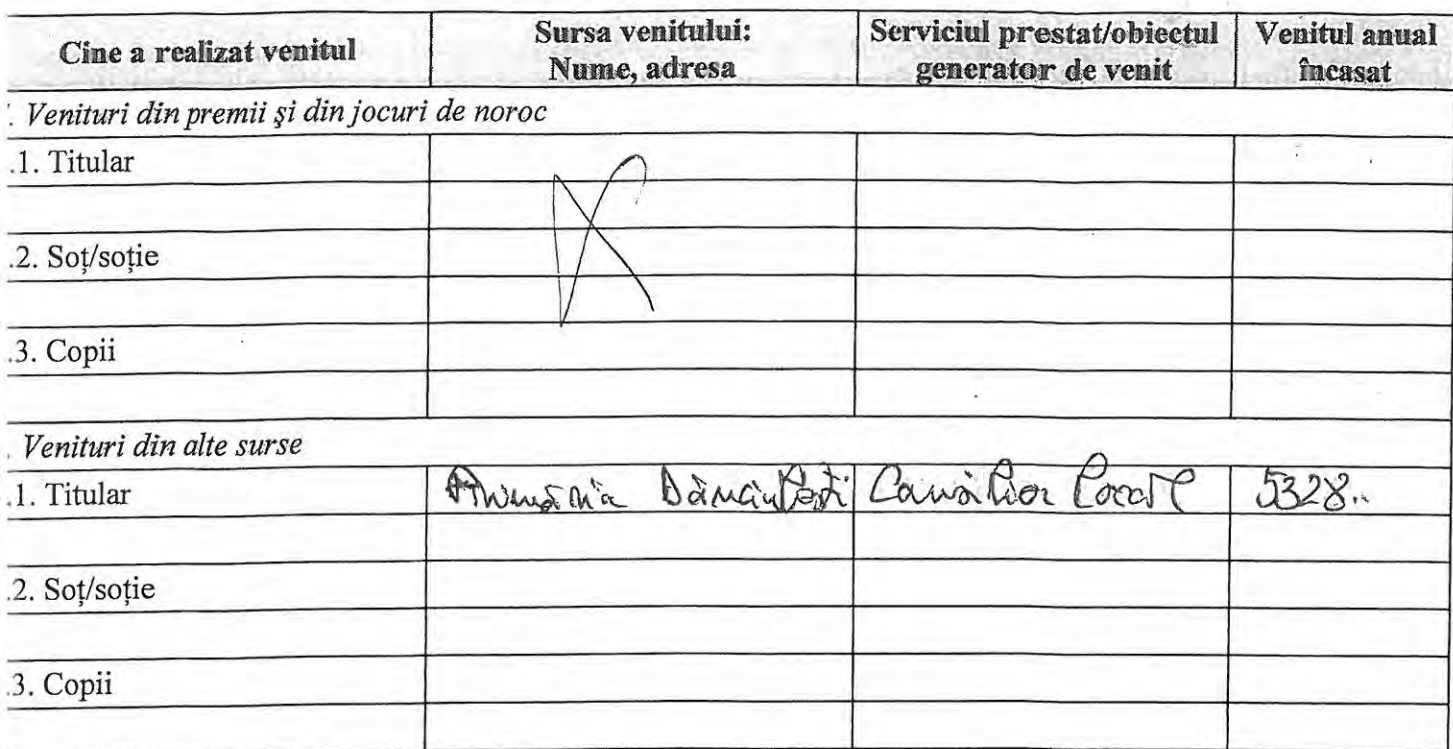 Cine a realizat venitul Sursa venitului: Nume, adresa Serviciul prestat/obiectul generator de venit Venitul anual încasat
. Venituri din premii şi din jocuri de noroc
.1. Titular
.2. Soţ/soţie
.3. Copii
. Venituri din alte surse
.1. Titular Primăria Consilier Local 5328
.2. Soţ/soţie
.3. Copii